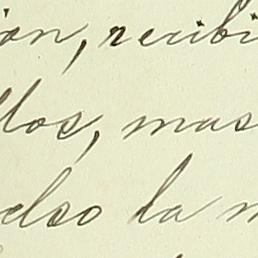 ion, recibi
llos, mas
elso la m